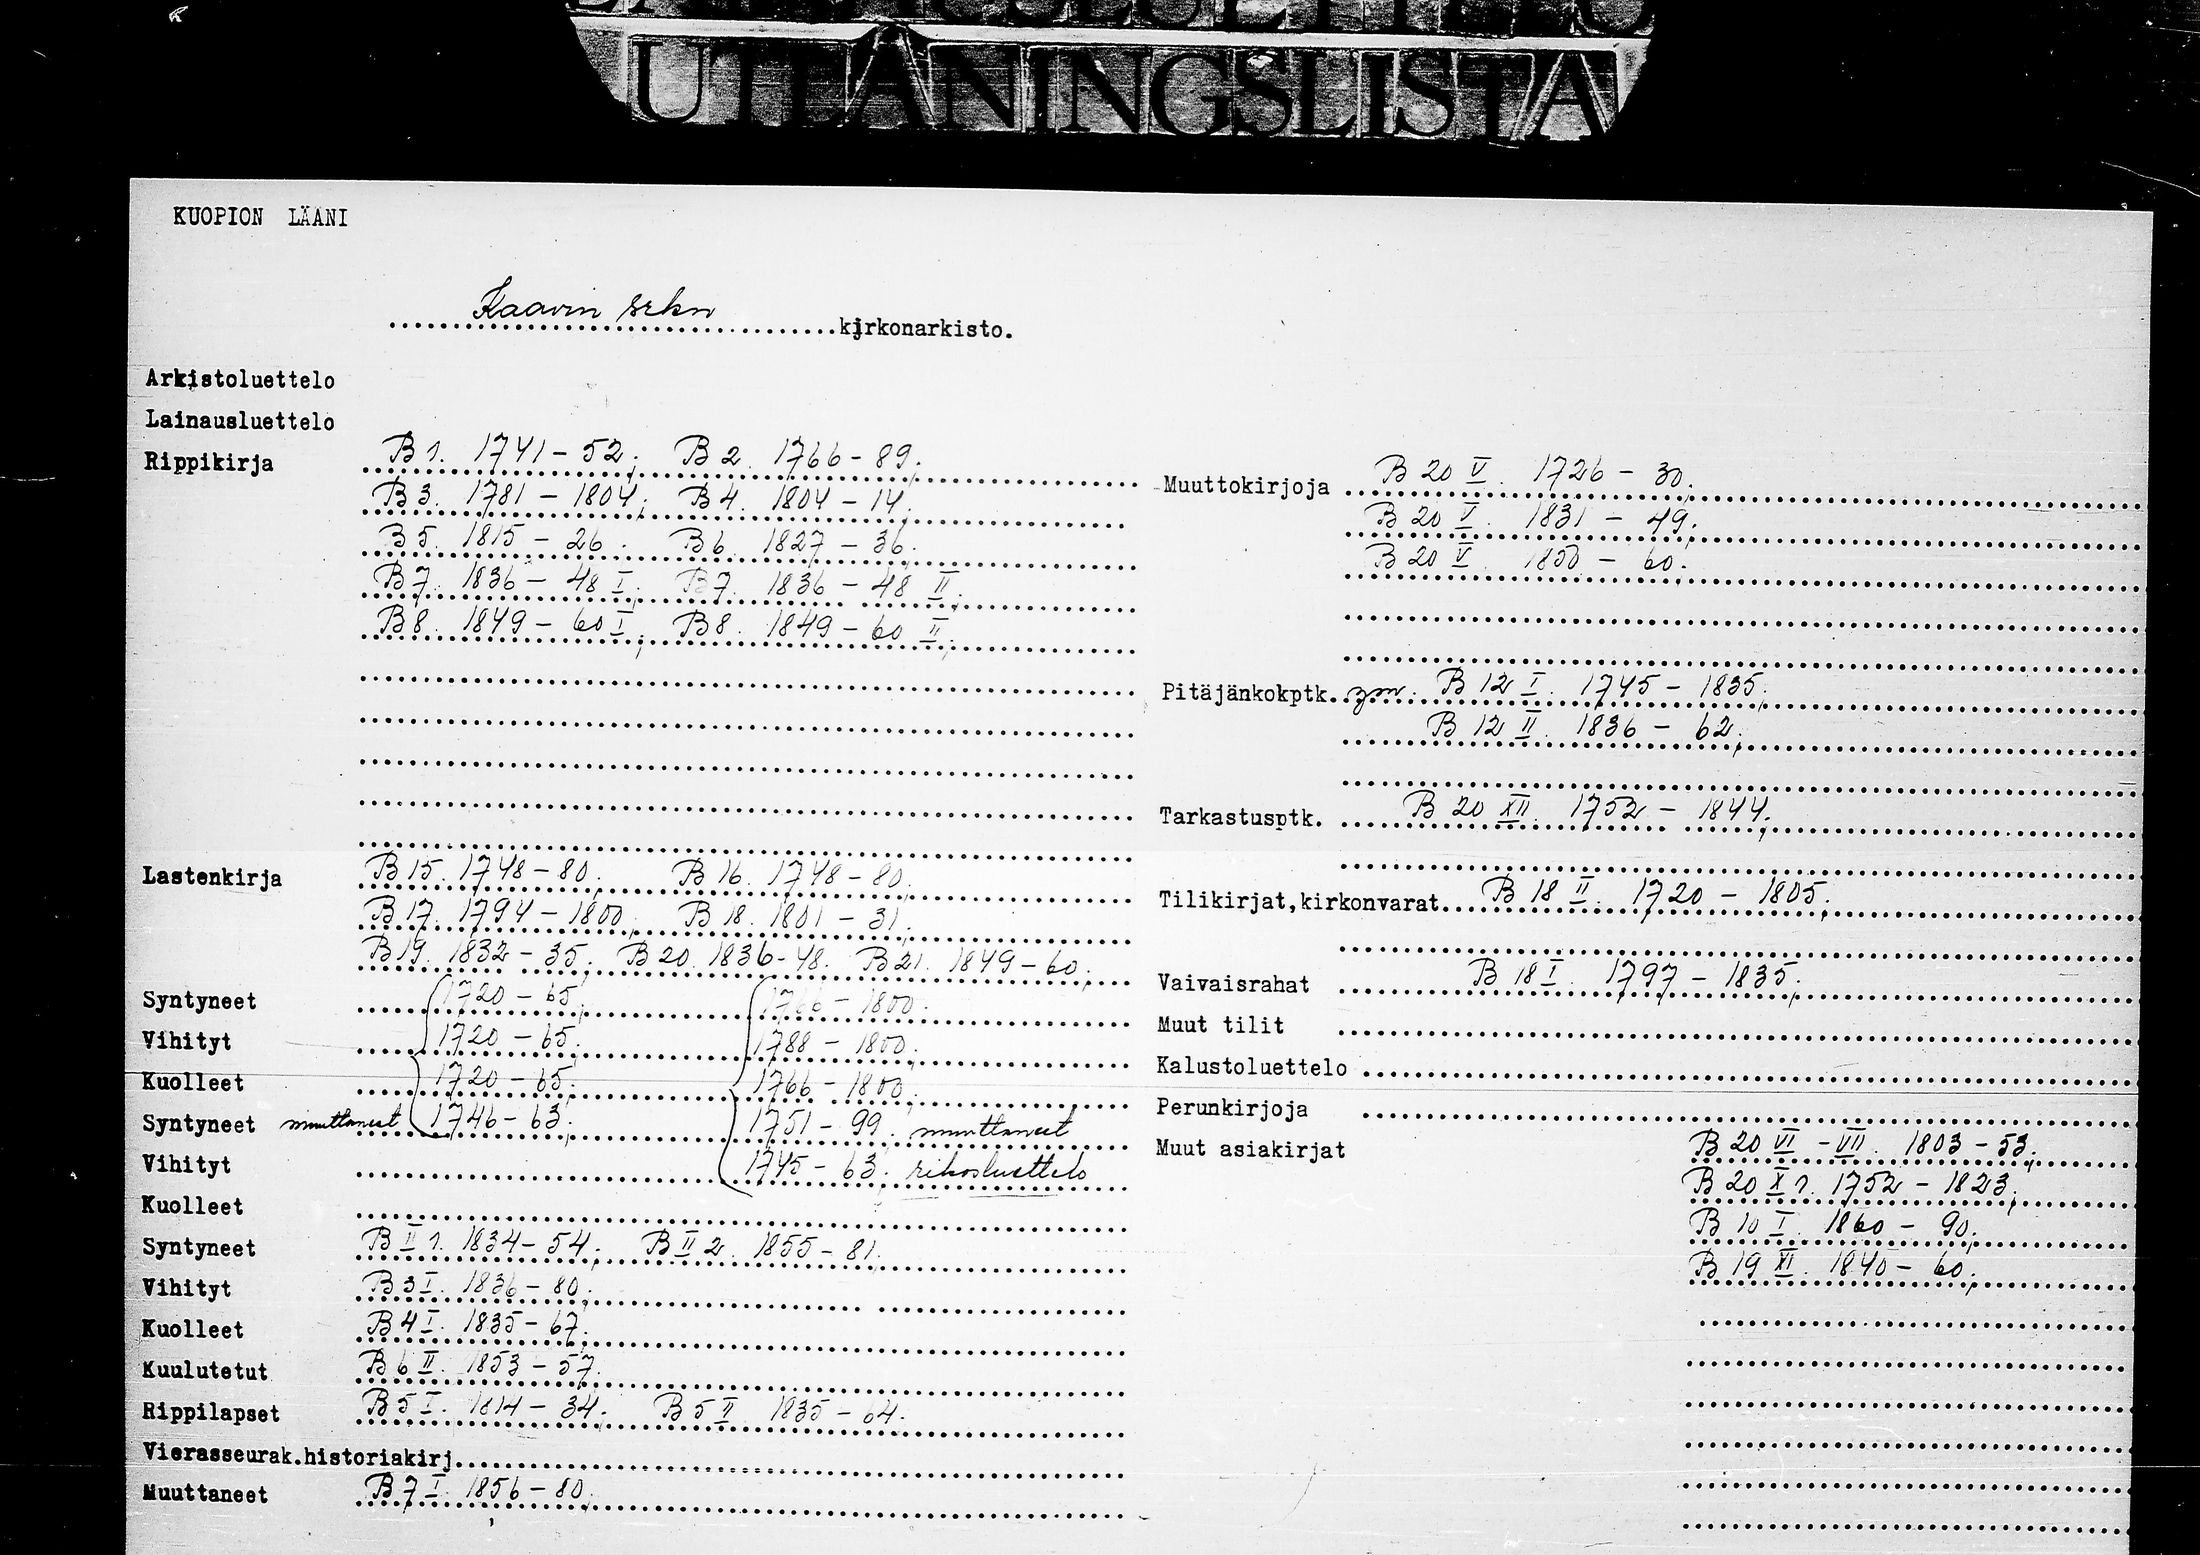 UTLÅNINGSLISTA
KUOPION LÄÄNI
Kaavin srkn kirkonarkisto.
Arkistoluettelo
Lainausluettelo
Rippikirja B 1. 1741 - 52; B 2. 1766 - 89;
B 3. 1781 - 1804; B 4. 1804 - 14;
B 5. 1815 - 26. B 6. 1827 - 36.
B 7. 1836 - 48 I; B 7. 1836 - 48 II;
B 8. 1849 - 60 I; B 8. 1849 - 60 II;
Lastenkirja B 15. 1748 - 80; B 16. 1748 - 80;
B 17. 1794 - 1800; B 18. 1801 - 31;
B 19. 1832 - 35; B 20. 1836 - 48. B 21. 1849 - 60;
Syntyneet 1720 - 65; 1766 - 1800.
Vihityt 1720 - 65; 1788 - 1800;
Kuolleet 1720 - 65; 1766 - 1800;
Syntyneet muuttaneet 1746 - 63; 1751 - 99; muuttaneet
Vihityt 1745 - 63; rikosluettelo
Kuolleet
Syntyneet B II 1. 1834 - 54; B II 2. 1855 - 81.
Vihityt B 3 I. 1836 - 80;
Kuolleet B 4 I. 1835 - 67;
Kuulutetut B 6 II. 1853 - 57.
Rippilapset B 5 I. 1814 - 34; B 5 II. 1835 - 64.
Vierasseurak.historiakirj.
Muuttaneet B 7 I. 1856 - 80.
Muuttokirjoja B 20 V. 1726 - 30;
B 20 V. 1831 - 49;
B 20 V. 1850 - 60.
Pitäjänkokptk. ym. B 12 I. 1745 - 1835;
B 12 II. 1836 - 62;
Tarkastusptk. B 20 XII. 1752 - 1844;
Tilikirjat,kirkonvarat. B 18 II. 1720 - 1805;
Vaivaisrahat B 18 I. 1797 - 1835;
Muut tilit
Kalustoluettelo
Perunkirjoja
Muut asiakirjat B 20 VI - VII. 1803 - 53;
B 20 X 1. 1752 - 1823;
B 10 I. 1860 - 90;
B 19 XI. 1840 - 60;